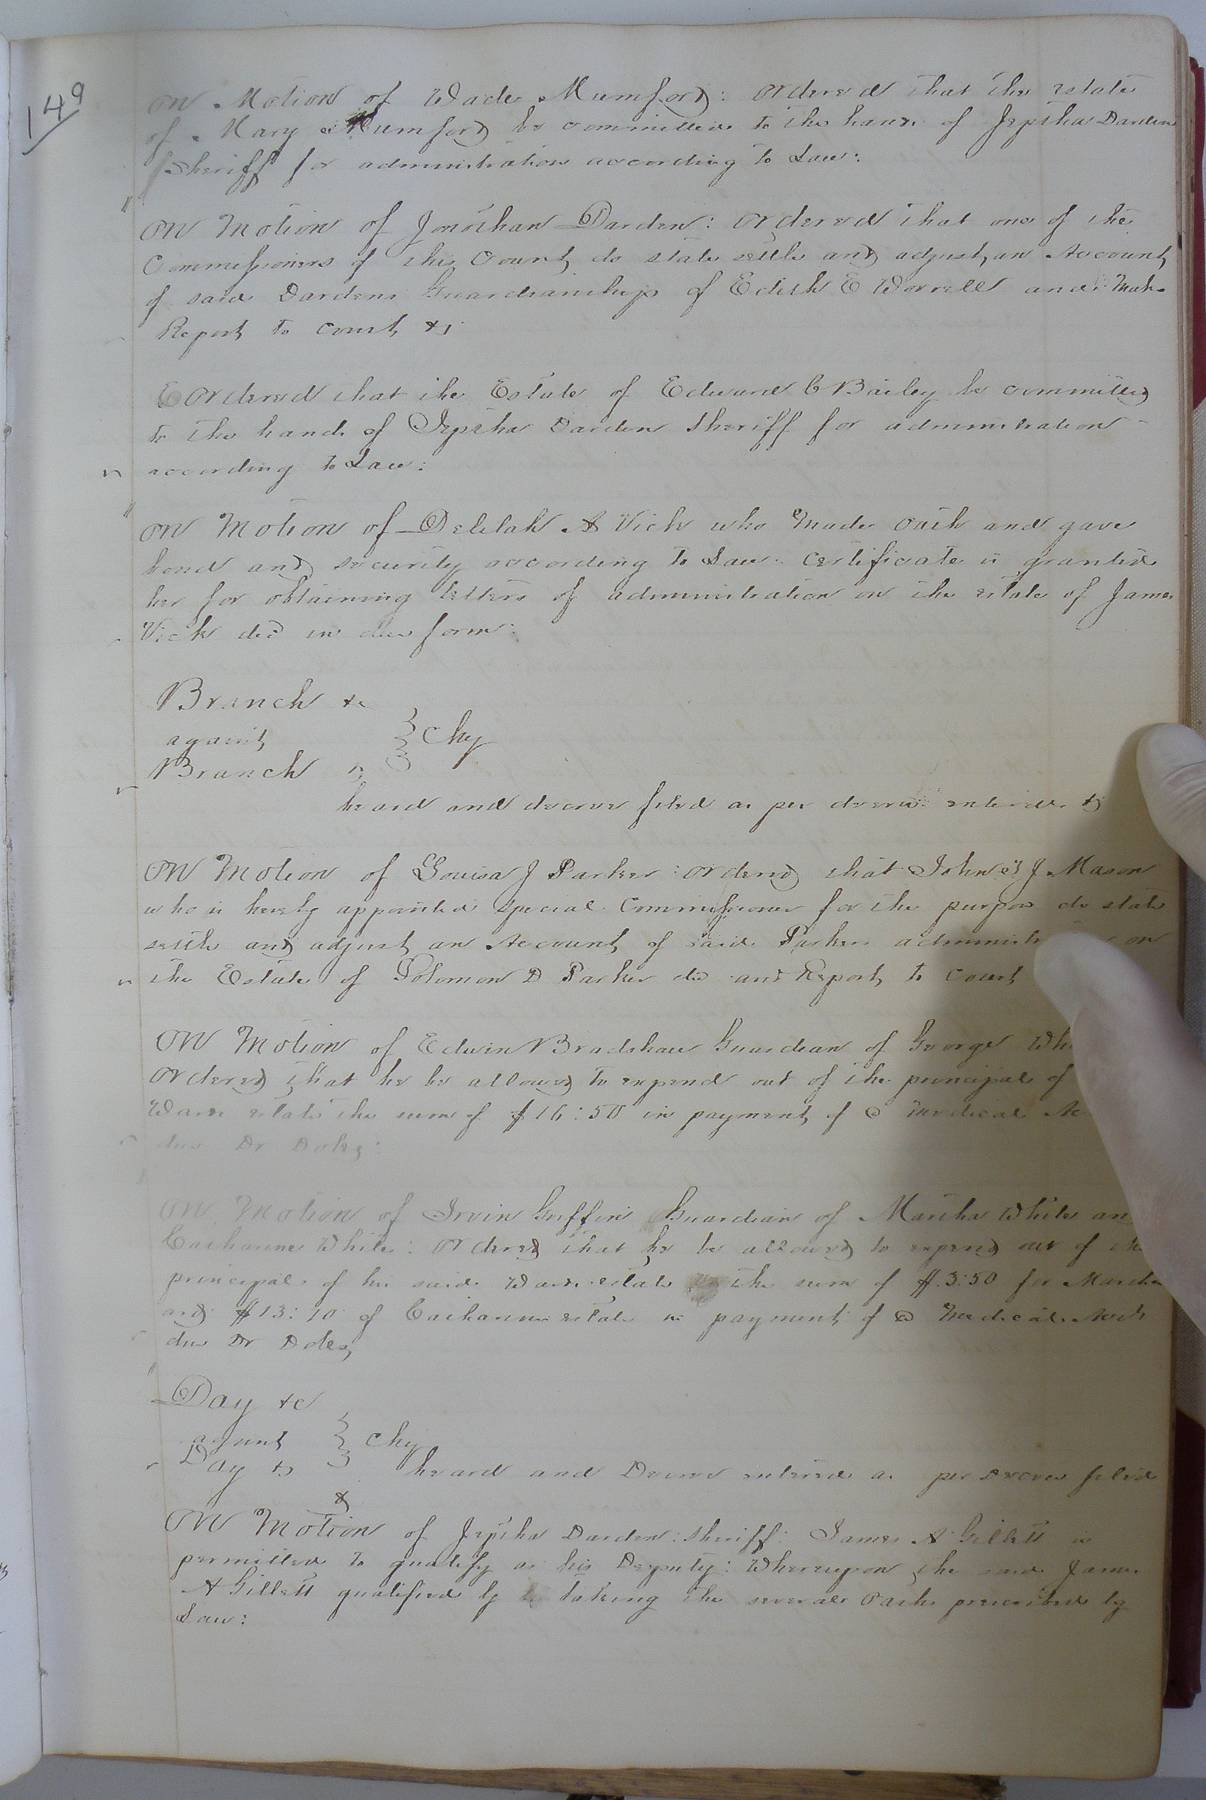 149
On Motion of Wade Mumford: ordered that the estate
of Mary Mumford be committed to the hands of Jeptha Darden
Sheriff for administration according to Law:
On Motion of Jonathan Darden: ordered that one of the
Commissioners of this Court, do state settle and adjust, an Account,
of said Dardens Guardianship of Edith E Worrell and Make
Report to Court &c
Ordered that the Estate of Edward C Bailey be committed
to the hands of Jeptha Darden Sheriff for administration
according to Law:
On Motion of Delilah A Vick who Made oath and gave
bond and security according to Law: Certificate is granted
her for obtaining letters of administration on the estate of James
Vick decd in due form:
Branch &c
against
Chy
Branch &c
heard and decree filed as per decree entered &c
On Motion of Louisa J Parker: ordered that John J Mason
who is hereby appointed special Commissioner for the purpose do state
settle and adjust, an Account, of said Parkers on
the Estate of Solomon D Parker decd and Report, to Court
On Motion of Edwin Bradshaw Guardian of George
Ordered, that he be allowed to expend out of the principal of
Wards estate the sum of $16:50 in payment, of a medical
due Dr Doles:
On Motion of Irvin Griffin Guardian of Martha White and
Catharine White: ordered that he be allowed to expend out of the
principal of his said Wards estate the sum of $3:50 for Martha
and $13:10 of Catharines estate in payment of a Medical Acct
due Dr Doles,
Day &c
against
Chy
Day &c heard and Decree entered as per Decree filed
&
On Motion of Jeptha Darden: Sheriff: James A Gillett is
permitted to qualify as his Deputy: Whereupon the said James
A Gillett qualified by taking the several oaths prescribed by
Law: